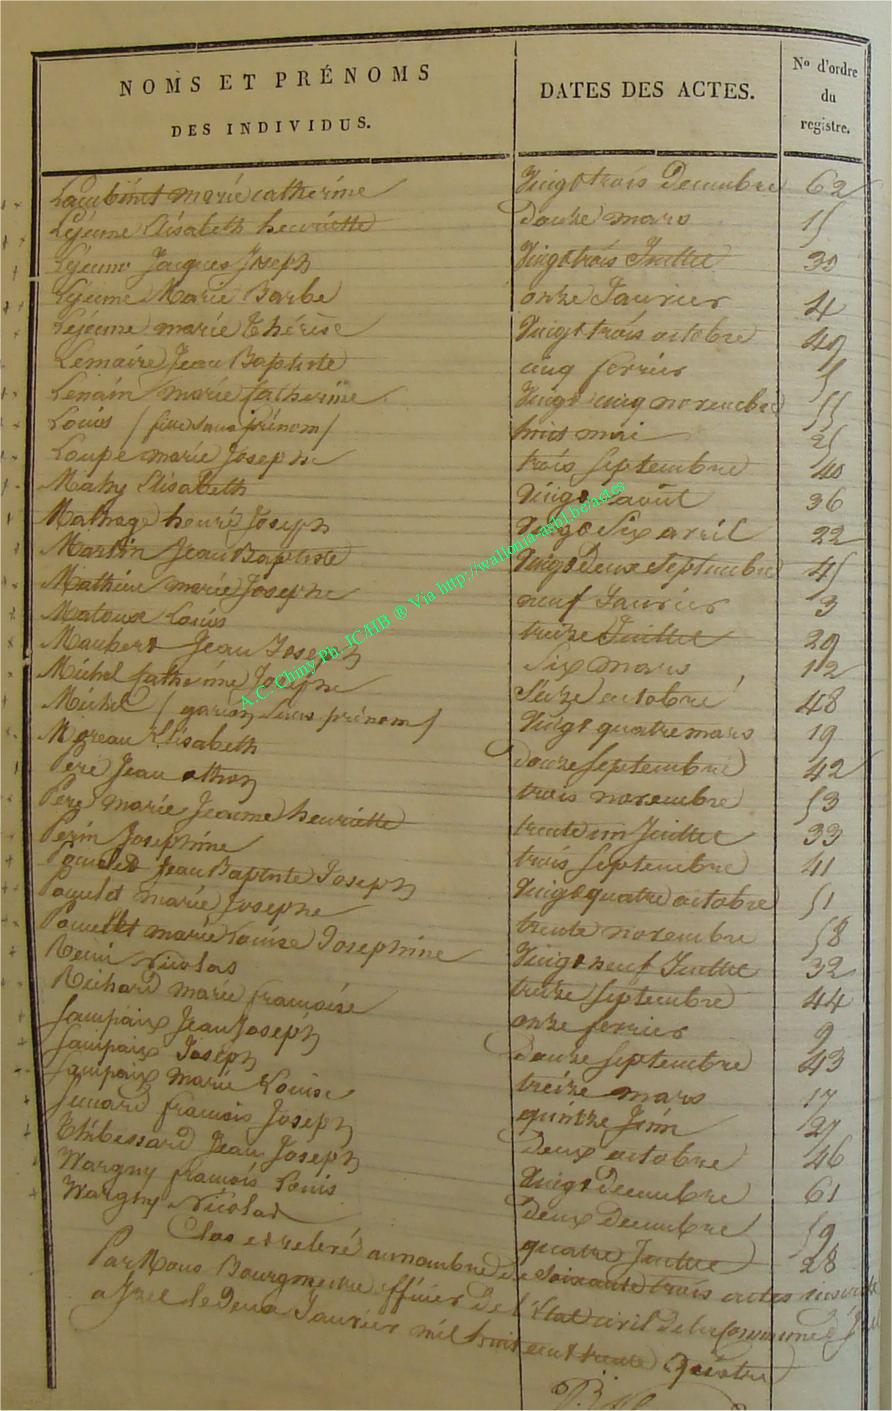 NOMS ET PRÉNOMS
DES INDIVIDUS.
DATES DES ACTES.
Nº d'ordre
du
registre.
Lambinet marie catherine Vingt trois Decembre 62
Lejeune Elisabeth henriette douze mars 15
Lejeune Jacques Joseph Vingt trois Juillet 30
Lejeune Marie Barbe onze Janvier 4
Lejeune marie Thérèse Vingt trois octobre 49
Lemaire Jean Baptiste cinq fevrier 5
Lenain marie catherine Vingt cinq novembre 55
Louis / fille sans prénom / huit mai 25
Loupe marie Josephe trois septembre 40
Mahy Elisabeth Vingt août 36
Malhage henri Joseph Vingt Six avril 22
Martin Jean Baptiste Vingt Deux Septembre 45
Mathieu marie Josephe neuf Janvier 3
Matoux Louis treize Juillet 29
Maubert Jean Joseph Six mars 12
Michel Catherine Josephe Seize octobre 48
Michel / garçon sans prénom / Vingt quatre mars 19
Moreau Elisabeth douze Septembre 42
Pere Jean trois novembre 53
Pere marie Jeanne henriette trente un Juillet 33
Perin Josephine trois Septembre 41
Poncelet Jean Baptiste Joseph Vingt quatre octobre 51
Poncelet marie Josephe trente novembre 58
Poncelet marie Louise Josephine Vingt neuf Juillet 32
Nicolas treize Septembre 44
Richard marie francoise onze fevrier 9
Sampaix Jean Joseph Douze Septembre 43
Sampaix Joseph treize mars 17
Sampaix marie Louise quinze Juin 27
francois Joseph Deux octobre 46
Thibessard Jean Joseph Vingt Decembre 61
Wargny francois Louis Deux Decembre 59
Wargny Nicolas quatre Juillet 28
Clos et releré au nombre de Soixante trois actes inscrits
Par Nous Bourgmestre officier de l'Etat civil de la Commune d'Izel
a Izel le Deux Janvier mil huit cent trente Quatre
A.C. Chiny Ph. ICAHB ® Via http://wallonia-asbl.be/actes